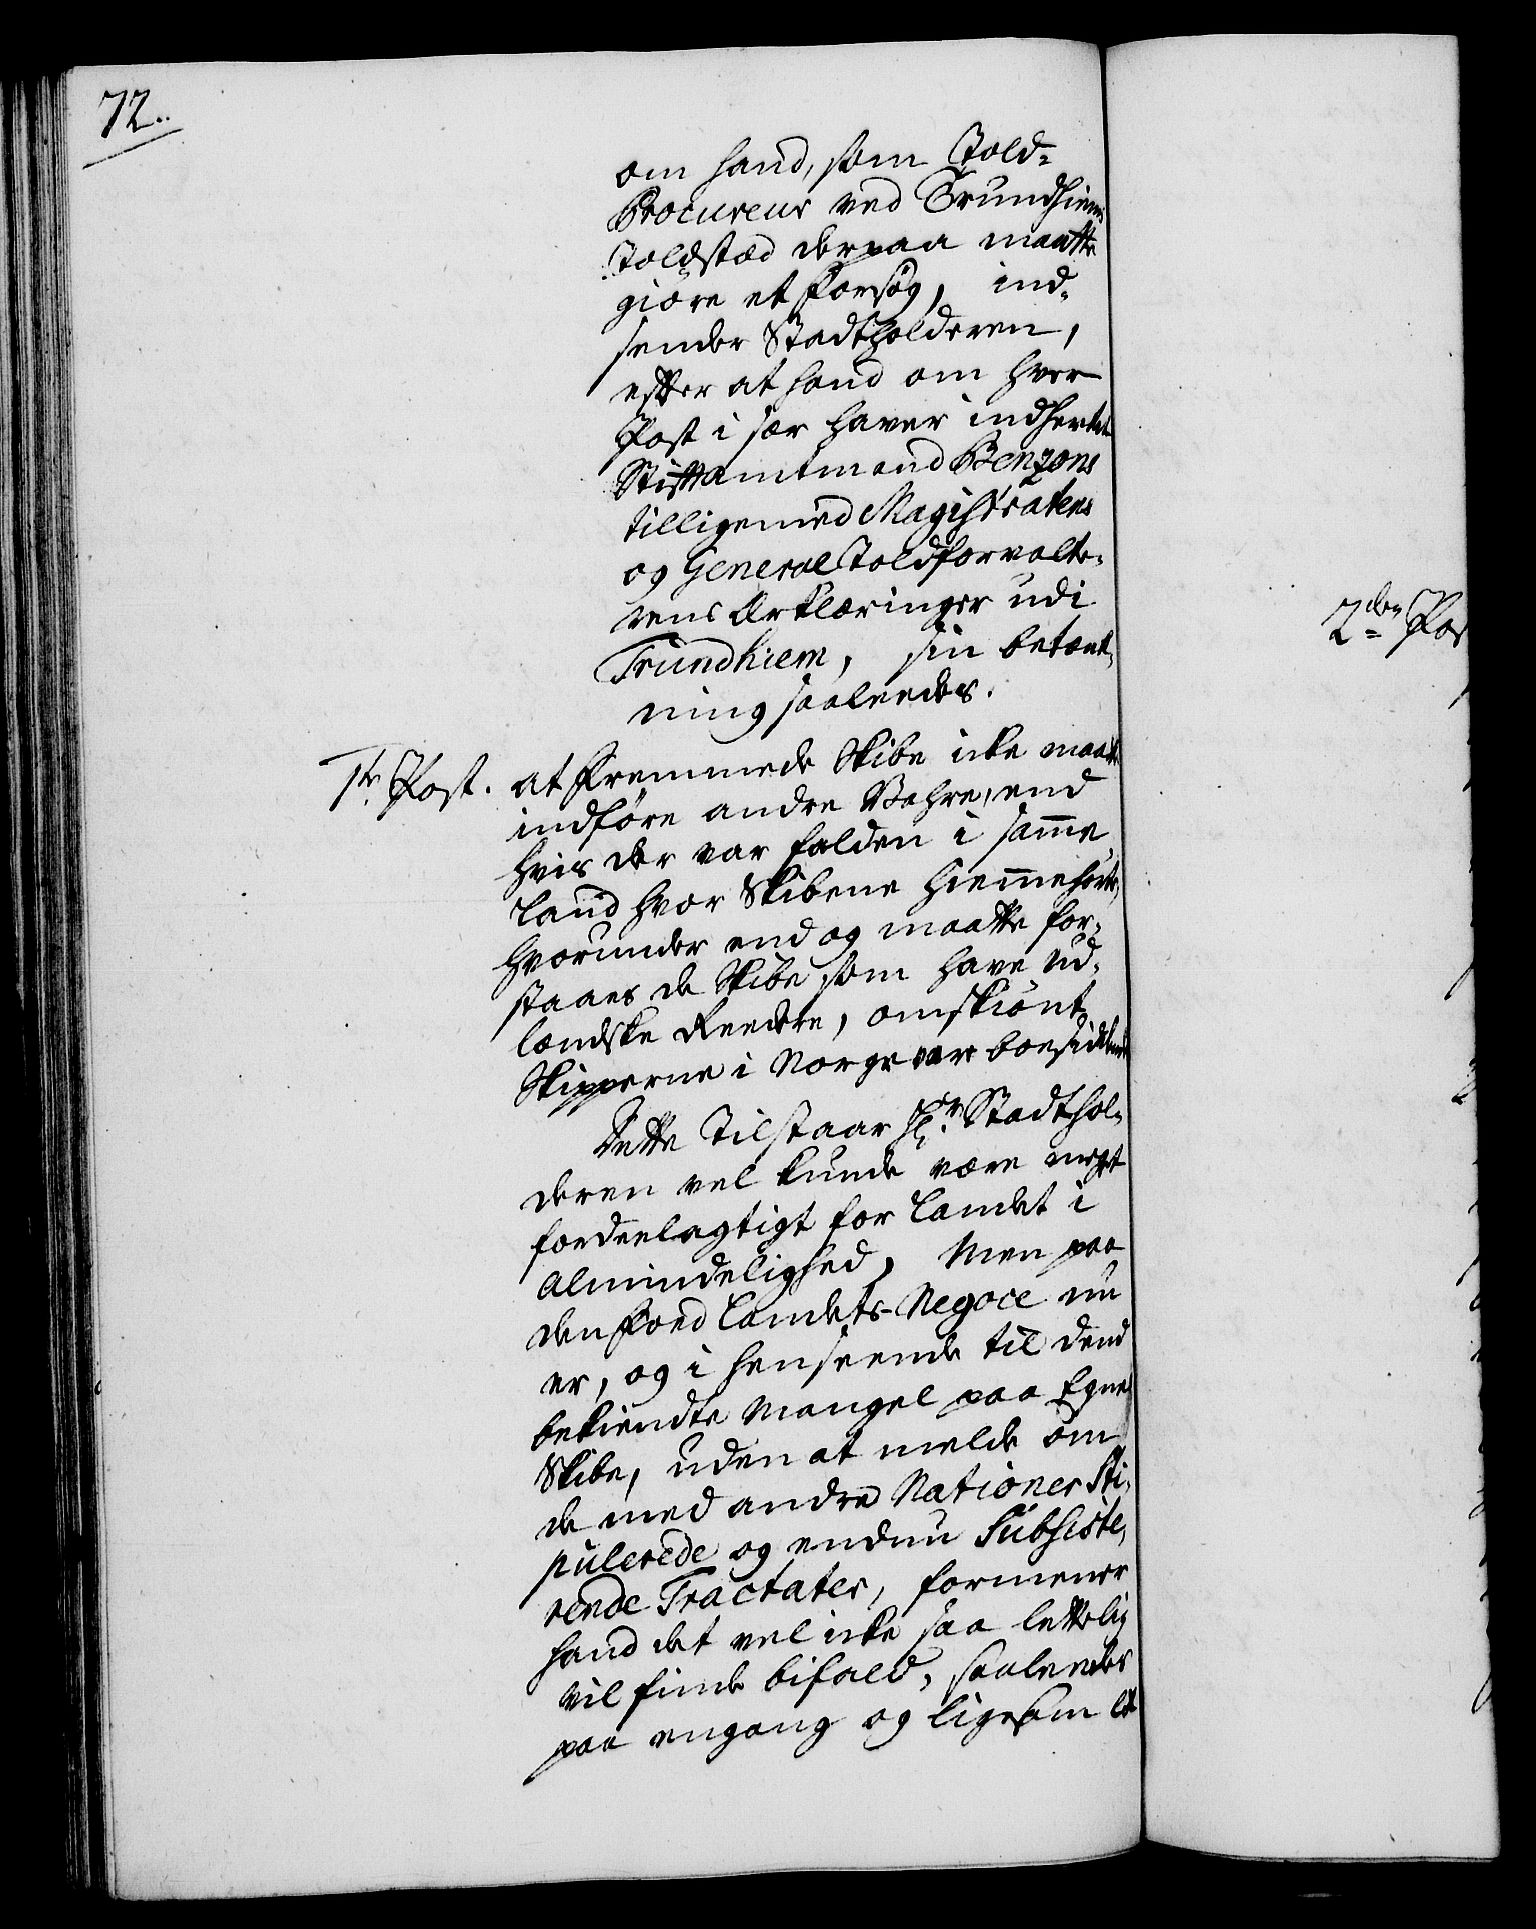 72.
om hand, som Told-
Procureur ved Trundhiems
Toldstæd derpaa maatte
giöre et Forsög, ind-
sender Stadtholderen,
efter at hand om hver
Post i sær haver indhentet
Stiftamtmand Benzons
tilligemed Magistratens
og General Toldforvalte-
rens Erklæringer udi
Trundhiem, sin betænk-
ning saaleedes.
1te Post. at fremmede Skibe icke maatte
indföre andre Vahre, end
hvis der var falden i samme
Land hvor Skibene hiemmehörte,
hvorunder end og maatte for-
staaes de Skibe som have ud-
lændske Reedere, omskiönt
Skipperne i Norge vare boesiddende
Dette Tilstaar Hr. Stadthol-
deren vel kunde være meget
fordeelagtigt for Landet i
Almindelighed, Men paa
den Foed Landets Negoce nu
er, og i henseende til dend
bekiendte Mangel paa Egne
Skibe, uden at melde om
de med andre Nationer Sti-
pulerede og endnu Subsiste-
rende Tractater, formener
hand det vel icke saa lettelig
vil finde bifald, saaleedes
paa engang og ligesom
2den Pos